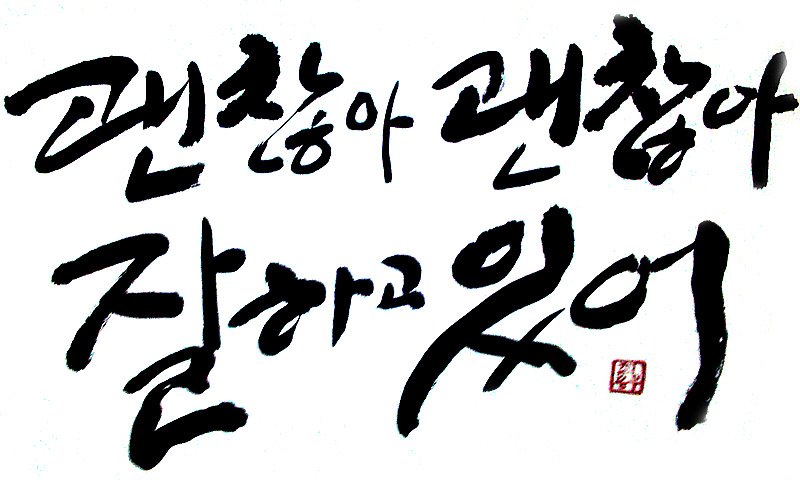 괜찮아 괜찮아
잘하고 있어